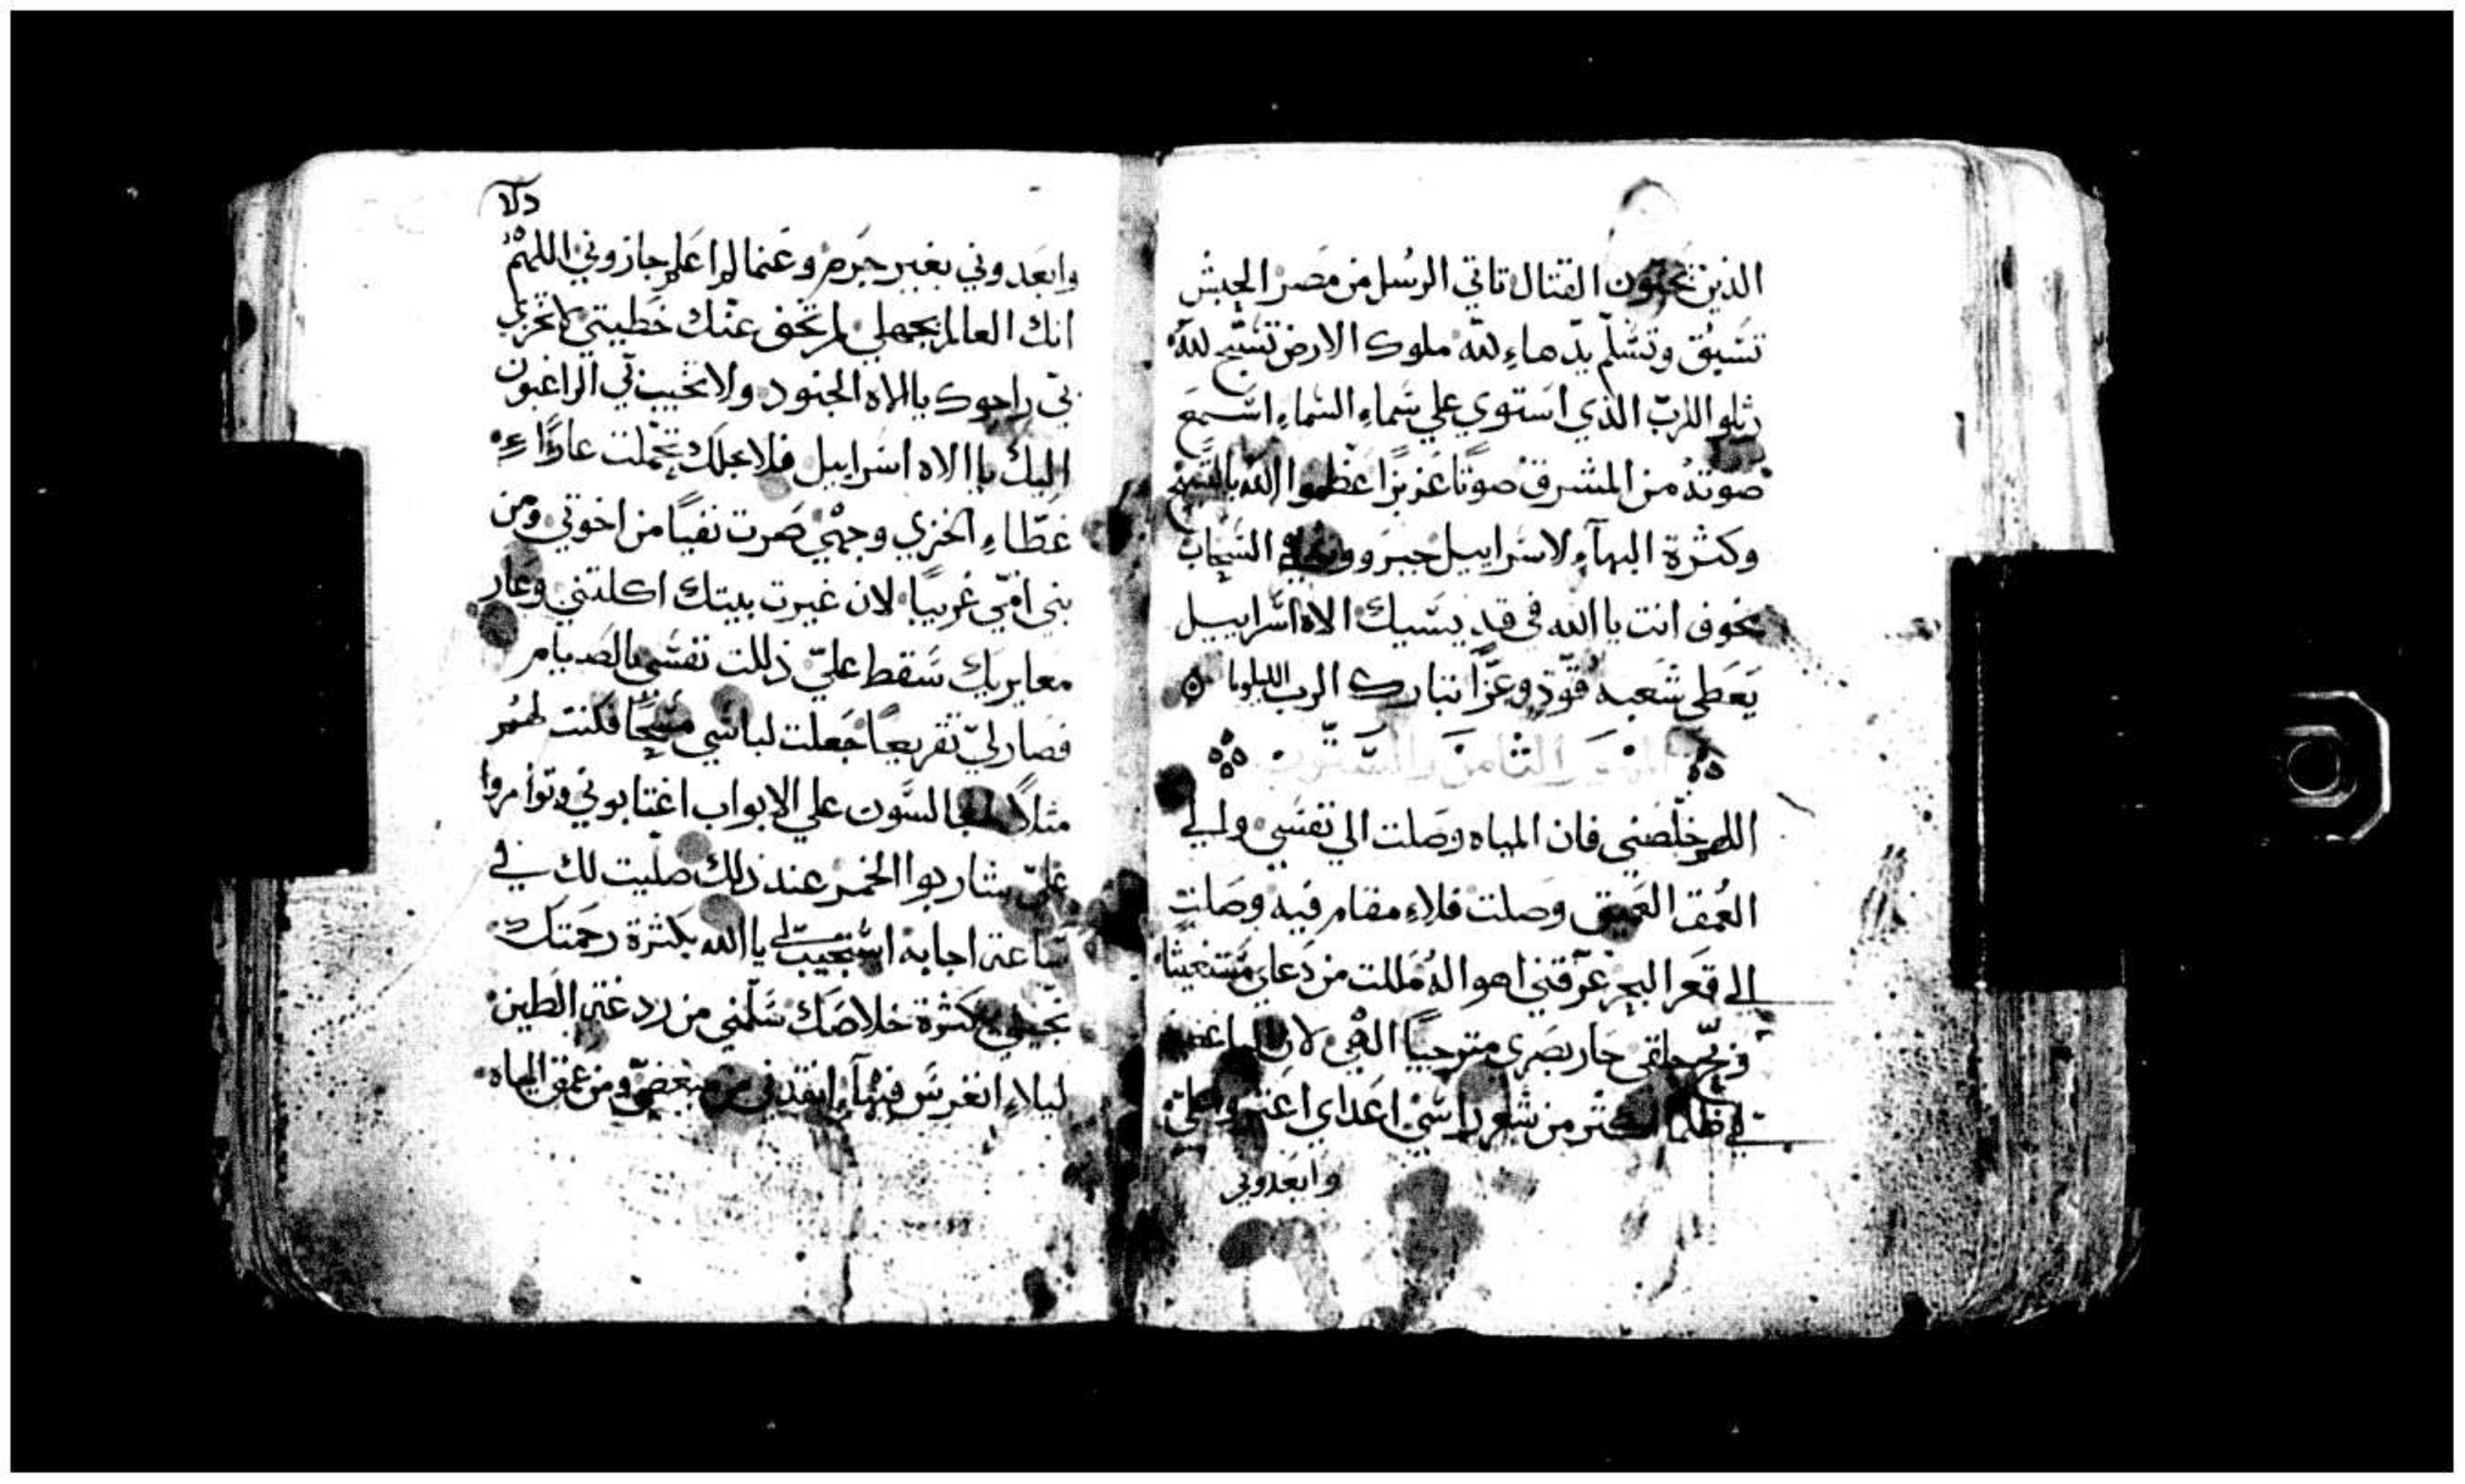 الذين يحبون القتال تاتي الرسل من مصر الحبش
تسبق وتسلم يدهاء لله ملوك الارض تسبح لله
رتلوا للرب الذي استوي علي سماء السماء اسمع
صوته من المشرق صوتًا عزيزًا عظموا الله بالتسبحه
وكثرة البهآء لاسراييل السحاب
مخوف انت يا الله في قديسيك الاه اسراييل
يعطي شعبه قوة وعزًا تبارك الرب الليلويا
المزمور الثامن والستون
اللهم خلصني فان المياه وصلت الي نفسي ولي
العمق العميق وصلت فلاء مقام فيه وصلت
الي قعر البحر غرقتني اهواله مللت من دعاي مستغيثًا
وبح حلقي حار بصري مترجيًا الهي لان
اكثر من شعر راسي اعداي اعتزوا علي
وابعدوني
وابعدوني بغير جرم وعنما لم اعلم جازوني اللهم
انك العالم بجهلي لم تخف عنك خطيتي لا تخزي
بي راجوك يا الاه الجنود ولا تخيب بي الراغبون
اليك يا الاه اسراييل فلاجلك تحملت عارًا
غطاء الخزي وجهي صرت نفيًا من اخوتي ومن
بني امي غريبًا لان غيرت بيتك اكلتني وعار
معايريك سقط علي ذللت نفسي بالصيام
فصار لي تقريعًا جعلت لباسي مسحًا فكنت لهم
مثلاً الجالسون علي الابواب اغتابوني وتوامروا
علي شاربوا الخمر عند ذلك صليت لك في
ساعة اجابة استجيب لي يا الله بكثرة رحمتك
نجيني بكثرة خلاصك سلمني من ردغة الطين
ليلاء انغرس فيهآء انقذني من مبغضي ومن عمق المياه